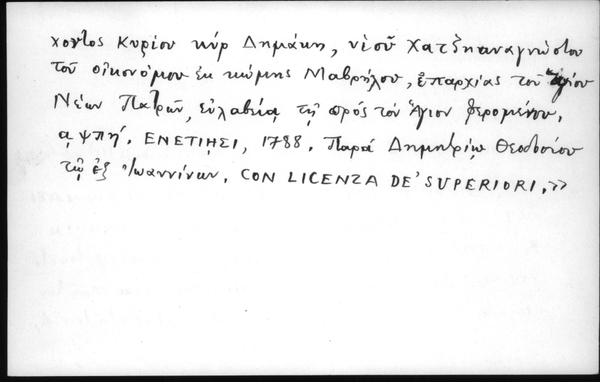 χοντος Κυρίου κύρ Δημάκη, υἱοῦ Χατζηαναγνώστου
τοῦ οἰκονόμου ἐκ κώμης Μαβρήλου, ἐπαρχίας τοῦ ἁγίου
Νέων Πατρῶν, εὐλαβείᾳ τῇ πρός τόν Ἅγιον φερομένου,
αψπη΄. ΕΝΕΤΙῌΣΙ, 1788. Παρά Δημητρίῳ Θεοδοσίου
τῷ ἐξ Ἰωαννίνων. CON LICENZA DE' SUPERIORI.»